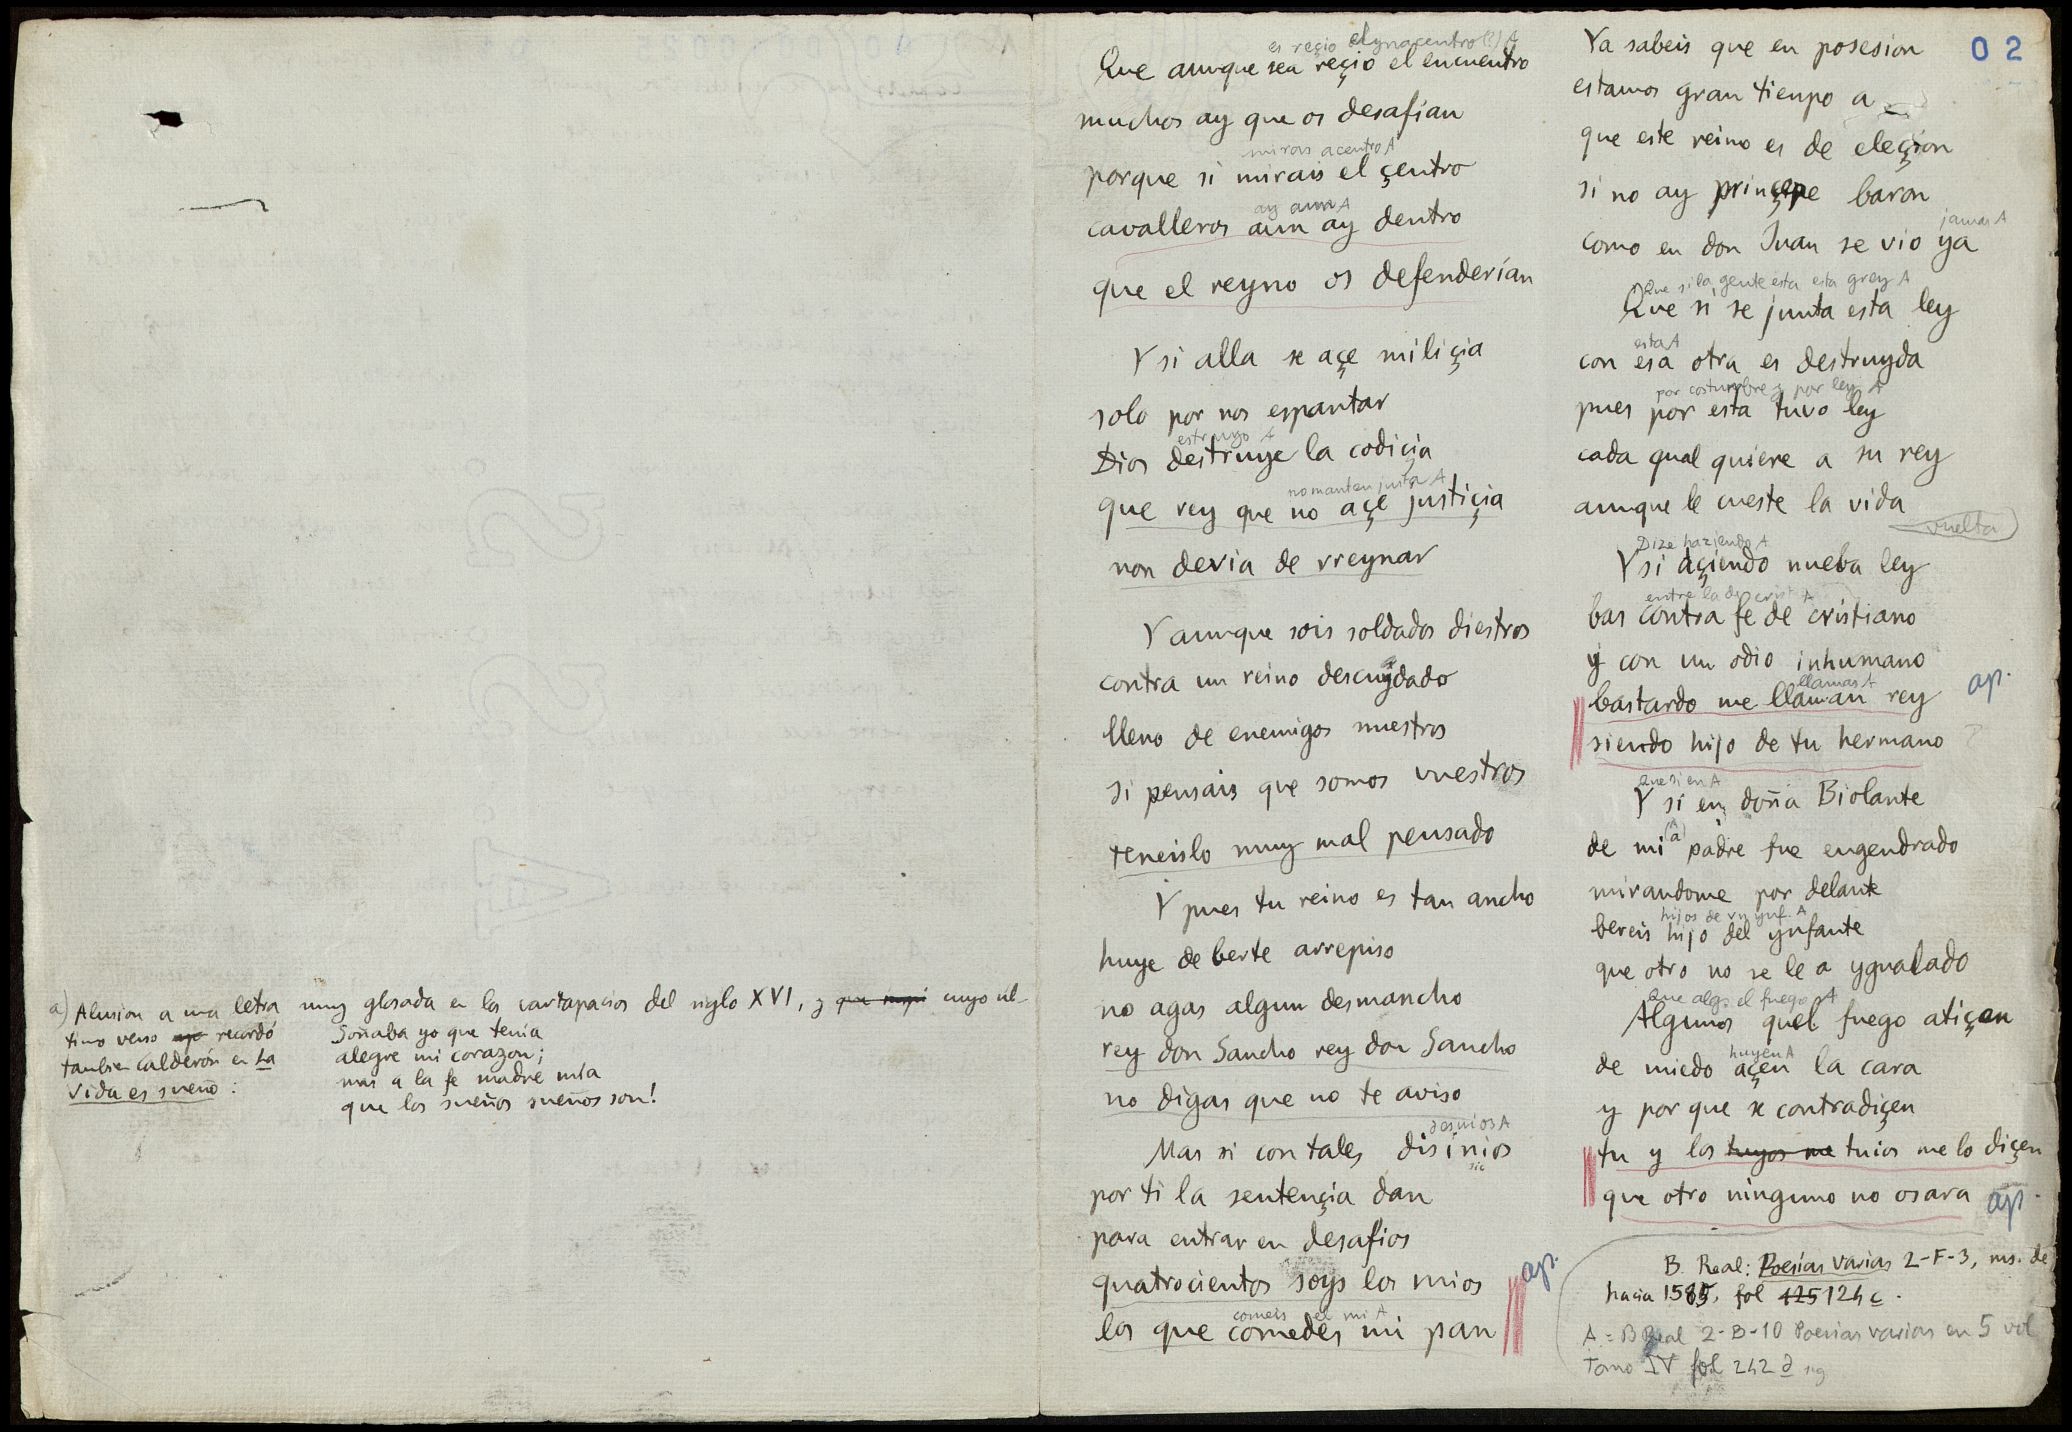 a) Alusion a una letra muy glosada en los cartapacios del siglo XVI, y que cuyo úl-
timo verso recordó
tambien Calderón en La
vida es sueño:
Soñaba yo que tenia
alegre mi corazon;
mas a la fe madre mia
que los sueños sueños son!
es reçio el A
Que aunque sea reçio el encuentro
muchos ay que os desafian
mirais acentro A
porque si mirais el çentro
ay aun A
cavalleros aun ay dentro
que el reyno os defenderian
Y si alla se açe miliçia
solo por nos espantar
estruyo A
Dios destruye la codiçia
no manten justa A
que rey que no açe justiçia
non devia de rreynar
Y aunque sois soldados diestros
contra un reino descuydado
lleno de enemigos nuestros
si pensais que somos vuestros
teneislo muy mal pensado
Y pues tu reino es tan ancho
huye de berte arrepiso
no agas algun desmancho
rey don Sancho rey don Sancho
no digas que no te aviso
desinios A
Mas si con tales disinios
sic
por ti la sentençia dan
para entrar en desafios
quatrocientos soys los mios
comeis el mi A
los que comedes mi pan
ap.
02
Ya sabeis que en posesion
estamos gran tienpo a
que este reino es de eleçion
si no ay prinçepe baron
jamas A
como en don Juan se vio ya
Que si la gente esta esta grey A
Que si se junta esta ley
esta A
con esa otra es destruyda
por costumbre y por ley A
pues por esta tuvo ley
cada qual quiere a su rey
aunque le cueste la vida
vuelta
Dize haziendo A
Y si açiendo nueba ley
entre la de crist A
bas contra fe de cristiano
y con un odio inhumano
llamas A
bastardo me llaman rey
ap.
siendo hijo de tu hermano ?
Que si en A
Y si en doña Biolante
(a) A
de mi padre fue engendrado
mirandome por delante
hijos de un ynf. A
bereis hijo del ynfante
que otro no se le a ygualado
Que algs el fuego A
Algunos quel fuego atiçan
huyen A
de miedo açen la cara
y por que se contradiçen
tu y los tuyos me tuios me lo diçen
que otro ninguno no osara
ap.
B. Real: Poesias varias 2-F-3, ms. de
hacia 1585, fol 125 124 c.
A = B Real 2-B-10 Poesias varias en 5 vol
Tomo IV fol 242 d sig